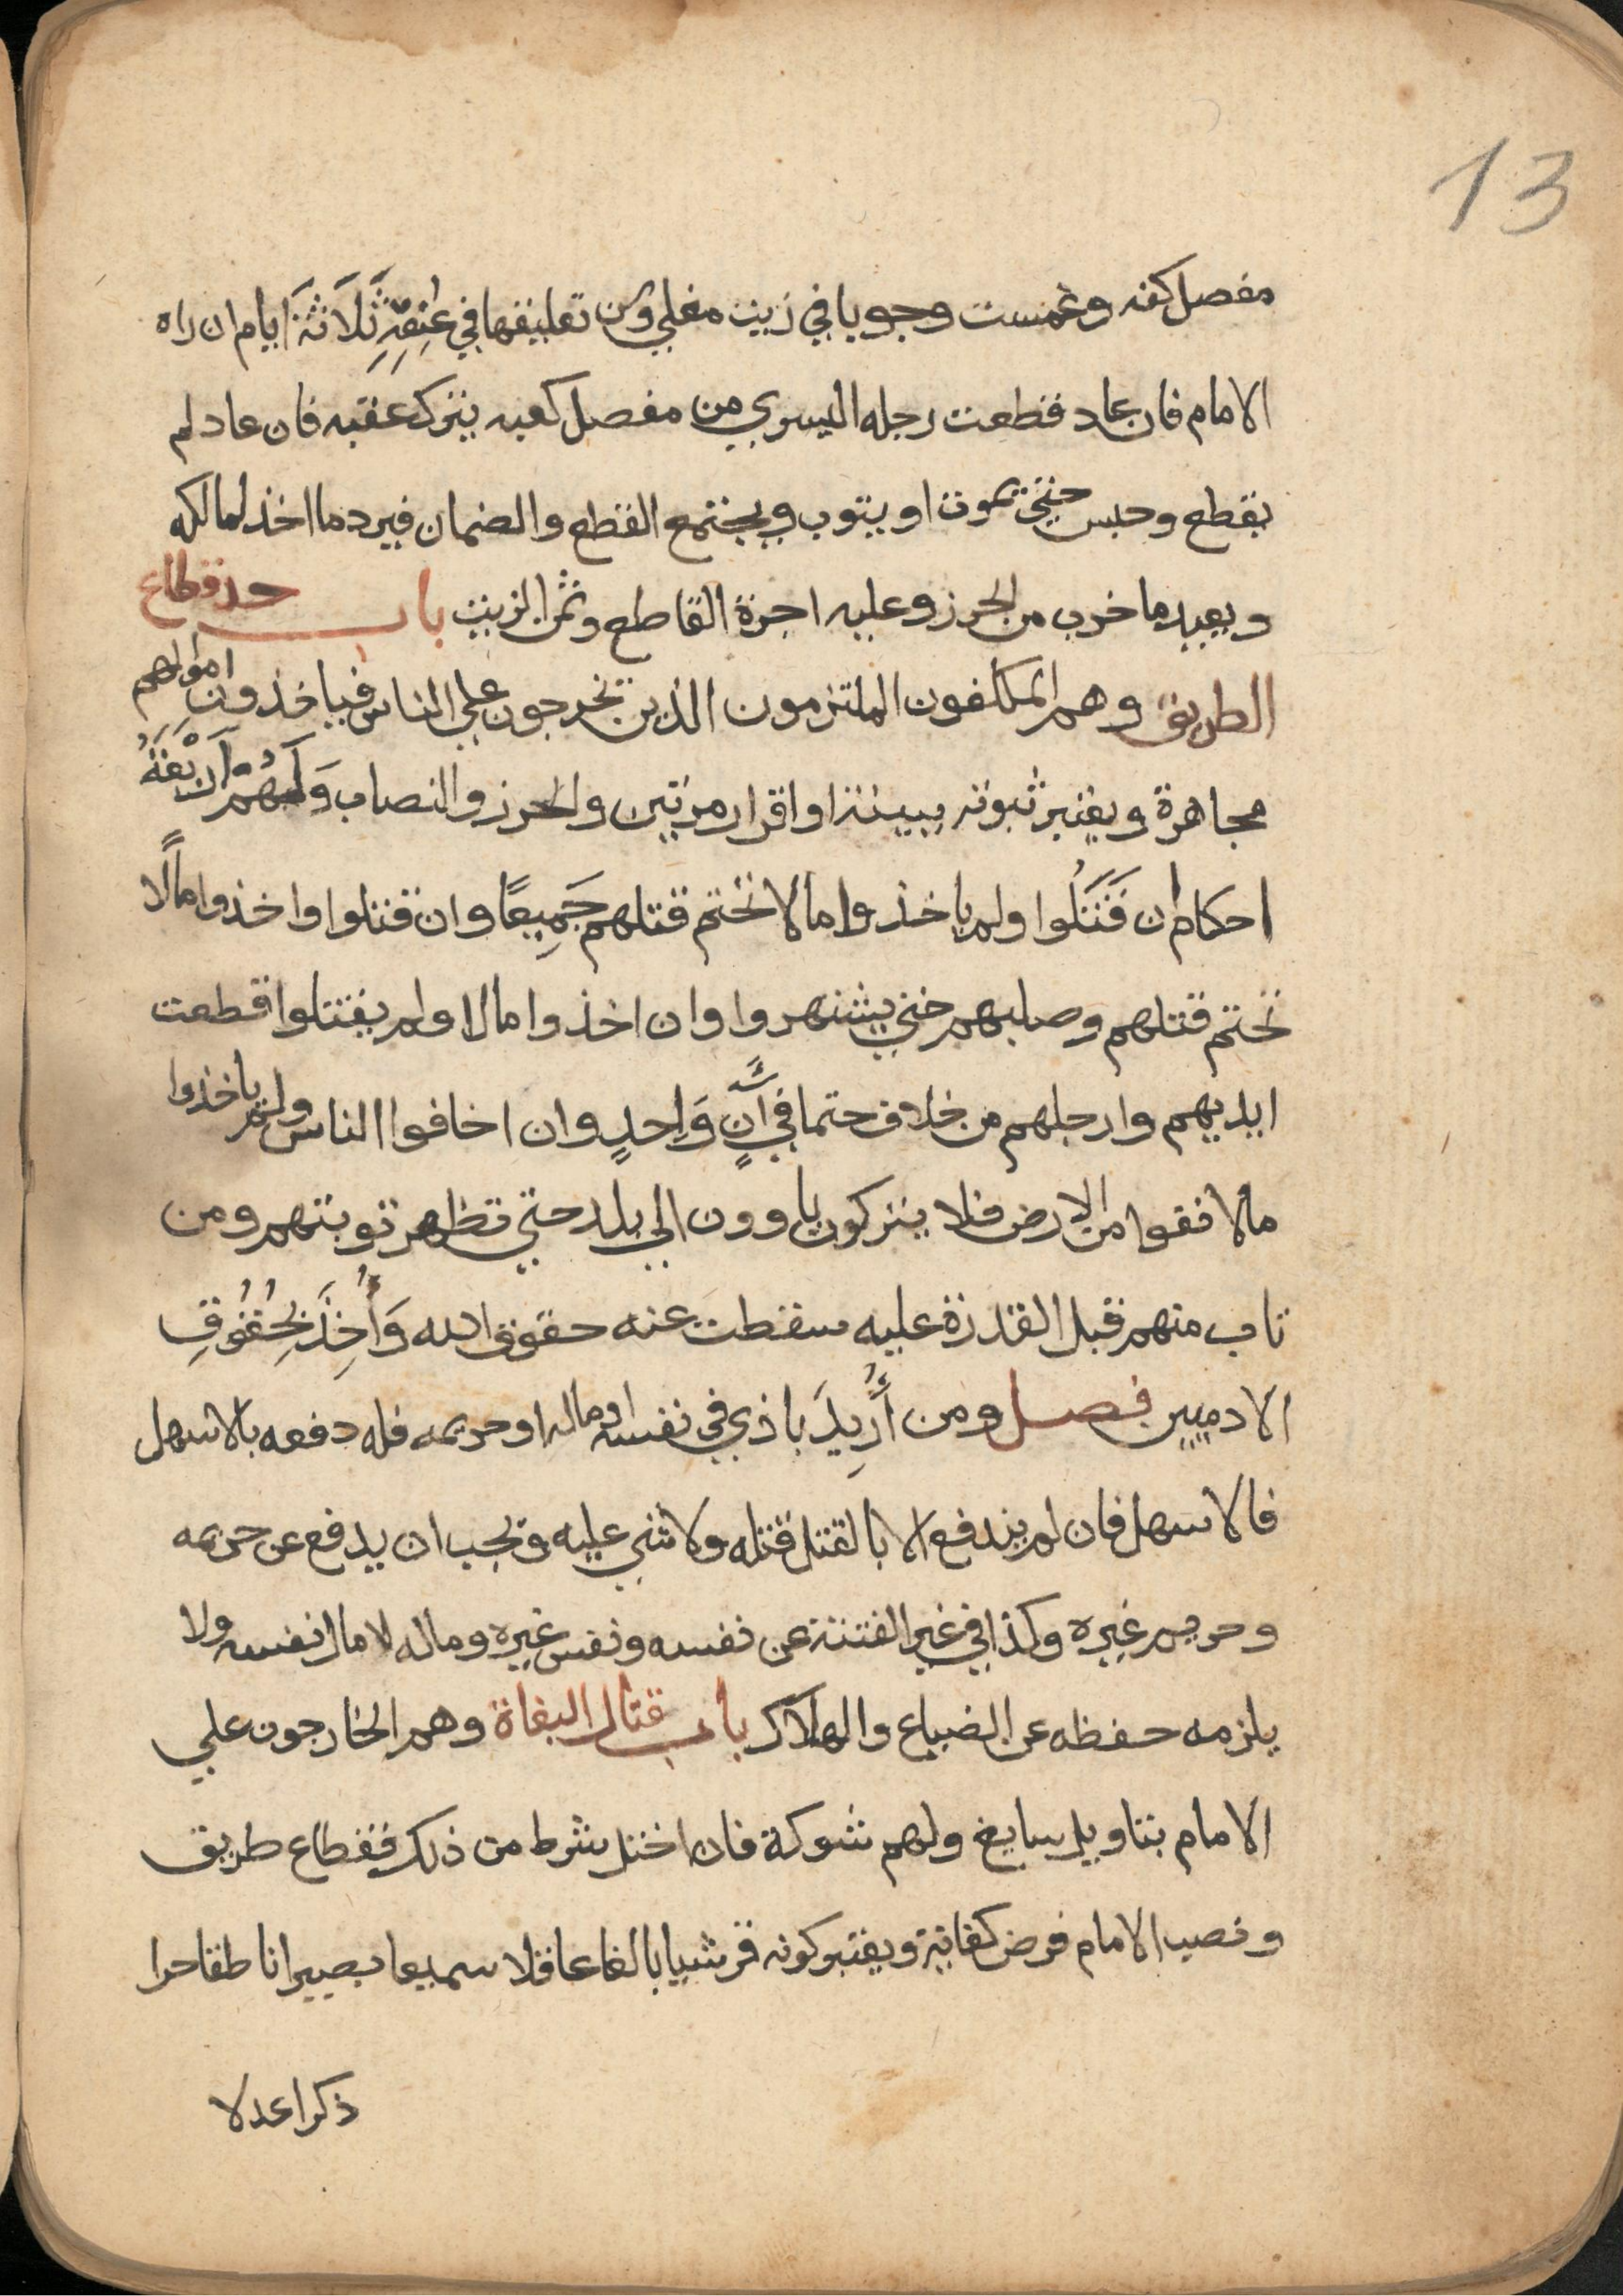 13
مفصل كفه وغمست وجوبا في زيت مغلي وسن تعليقها في عُنُقِهِ ثَلَاثَةَ ايام ان راه
الامام فان عاد فقطعت رجله اليسري من مفصل كعبه يترك عقبه فان عاد لم
يقطع وحبس حتي يموت او يتوب ويجتمع القطع والضمان فيرد ما اخذ لمالكه
ويعيد ما خرب من الحرز وعليه اجرة القاطع وثمن الزيت باب حد قطاع
الطريق وهم المكلفون الملتزمون الذين تخرجون علي الناس فياخذون اموالهم
مجاهرة ويعتبر ثبوته ببينة او اقرار مرتين والحرز والنصاب وَلَهُمْ أَرْبَعَةُ
احكام ان قَتَلُوا ولم ياخذوا مالا تحتم قتلهم جَمِيعًا وان قتلوا واخذوا مالًا
تحتم قتلهم وصلبهم حتي يشتهروا وان اخذوا مالا ولم يقتلوا قطعت
ايديهم وارجلهم من خلاف حتما في آنٍ وَاحِدٍ وان اخافوا الناس ولم ياخذوا
مالا نفوا من الارض فلا يتركون ياوون الي بلد حتي تظهر توبتهم ومن
تاب منهم قبل القدرة عليه سقطت عنه حقوق الله وَأُخِذَ بِحُقُوقِ
الادميين فصل ومن أُرِيدَ باذي في نفسه او ماله او حريمه فله دفعه بالاسهل
فالاسهل فان لم يندفع الا بالقتل قتله ولا شي عليه ويجب ان يدفع عن حريمه
وحريم غيره وكذا في غير الفتنة عن نفسه ونفس غيره وماله لا مال نفسه ولا
يلزمه حفظه عن الضياع والهلاك باب قتال البغاة وهم الخارجون علي
الامام بتاويل سايغ ولهم شوكة فان اختل شرط من ذلك فقطاع طريق
ونصب الامام فرض كفاية ويعتبر كونه قرشيا بالغا عاقلا سميعا بصيرا ناطقا حرا
ذكرا عدلا